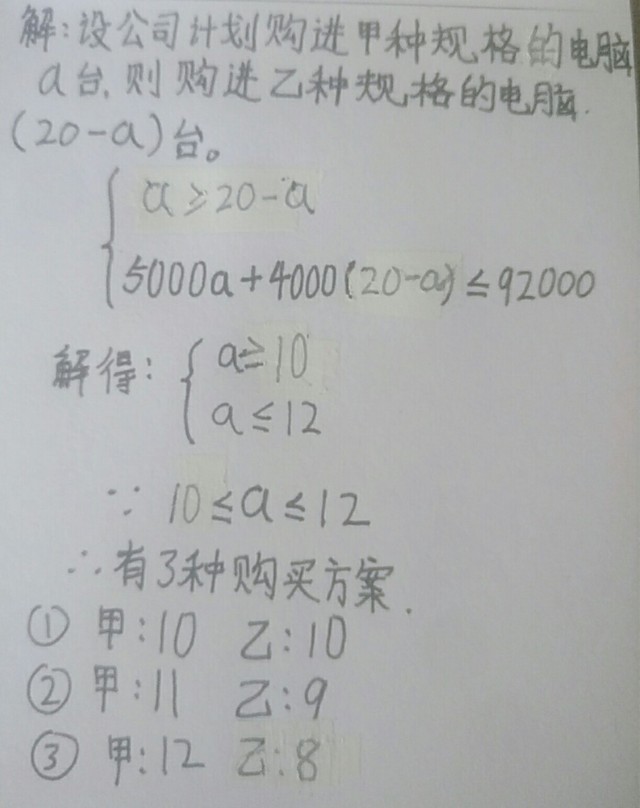 解:设公司计划购进甲种规格的电脑
a台,则购进乙种规格的电脑.
(20-a)台。
a≥20-a
5000a+4000(20-a)≤92000
解得: a≥10
a≤12
∵ 10≤a≤12
∴有3种购买方案.
① 甲:10 乙:10
② 甲:11 乙:9
③ 甲:12 乙:8